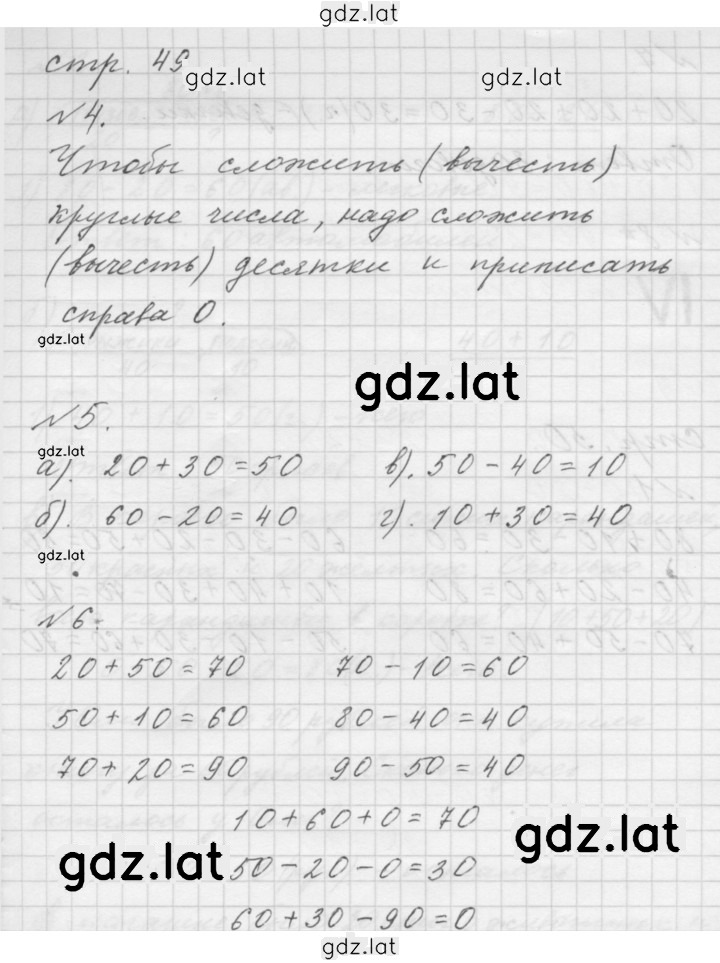 gdz.lat
стр. 49
gdz.lat gdz.lat
№4.
Чтобы сложить (вычесть)
круглые числа, надо сложить
(вычесть) десятки и приписать
справа 0.
gdz.lat
gdz.lat
№5.
gdz.lat
а). 20+30=50 в). 50-40=10
б). 60-20=40 г). 10+30=40
gdz.lat
№6.
20+50=70 70-10=60
50+10=60 80-40=40
70+20=90 90-50=40
10+60+0=70
gdz.lat
gdz.lat
50-20-0=30
60+30-90=0
gdz.lat